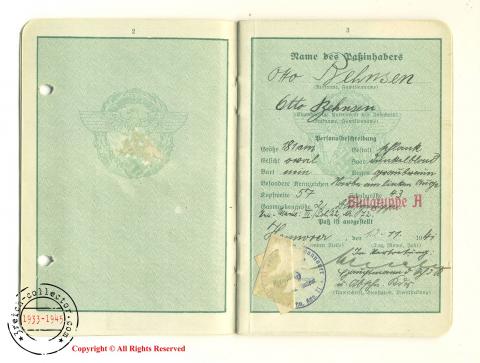 2
3
Name des Paßinhabers
Otto Behnsen
(Rufname, Familienname)
Otto Behnsen
(Rufname, Familienname)
Personalbeschreibung
Größe 181 cm Gestalt schlank
Gesicht oval Haar dunkelblond
Bart nein Augen graubraun
Besondere Kennzeichen Narbe am linken Auge
Kopfweite 57 Schuhgröße 43
Gasmaskengröße 2
Blutgruppe A
Paß ist ausgestellt
Hannover, den 12.11. 194
(Tag, Monat, Jahr)
In Vertretung:
3reich-collector.com
1933-1945
Copyright © All Rights Reserved